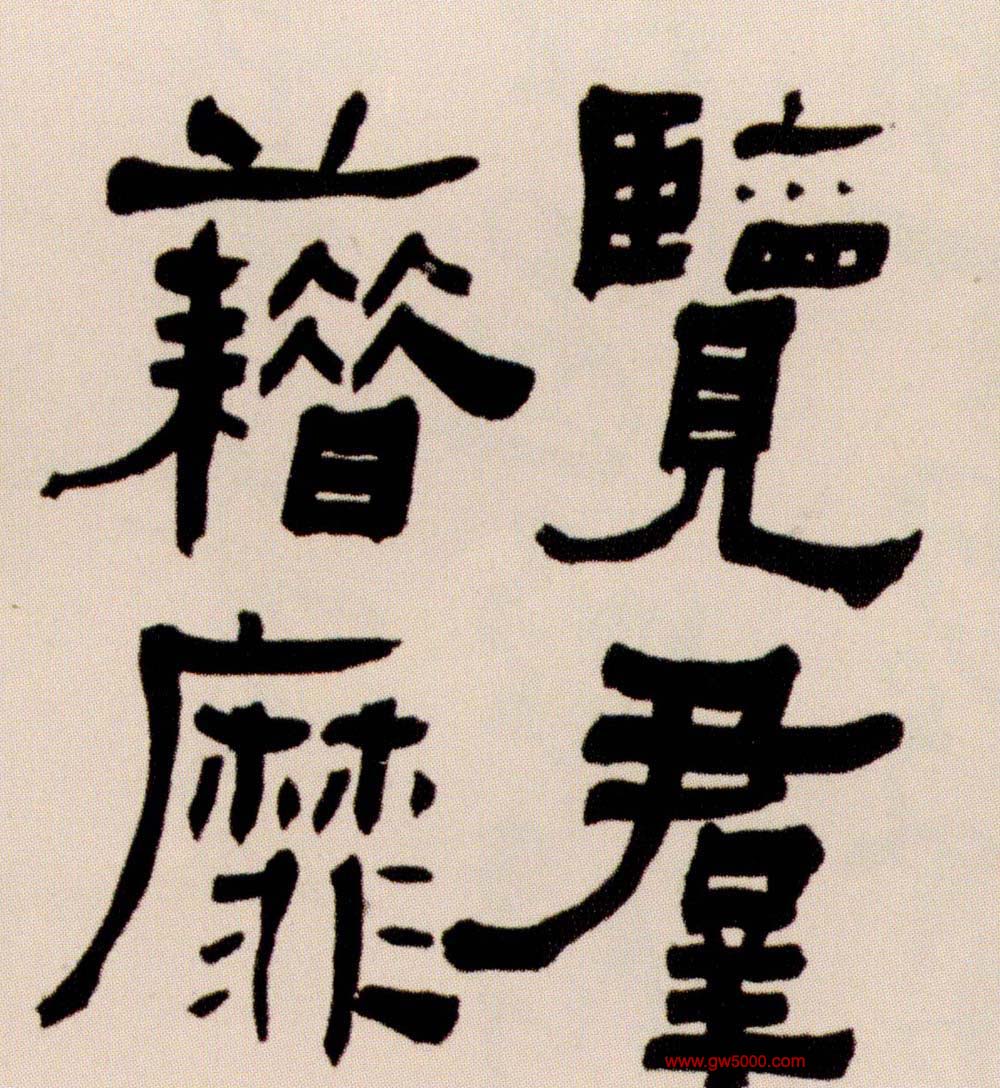 覽羣
藉靡
www.gw5000.com